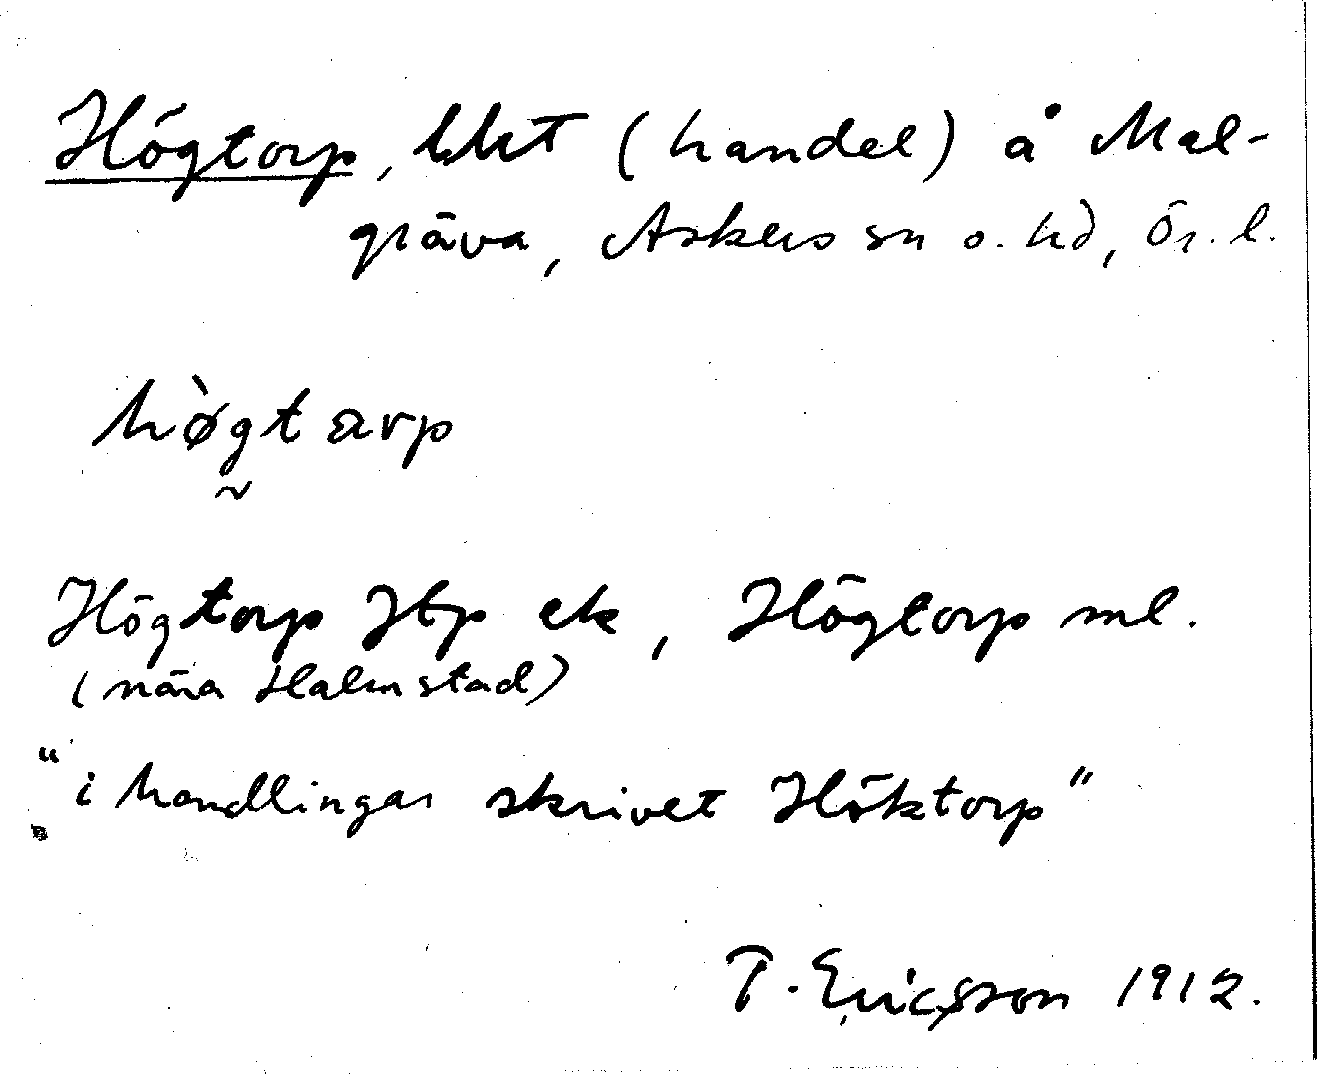 Högtorp, lht (handel) å Mal-
gräva, Askers sn o. hd, Ör. l.
hø̀gtarp
Högtorp Htp ek, Högtorp ml.
(nära Halmstad)
"i handlingar skrivet Höktorp"
T. Ericsson 1912.